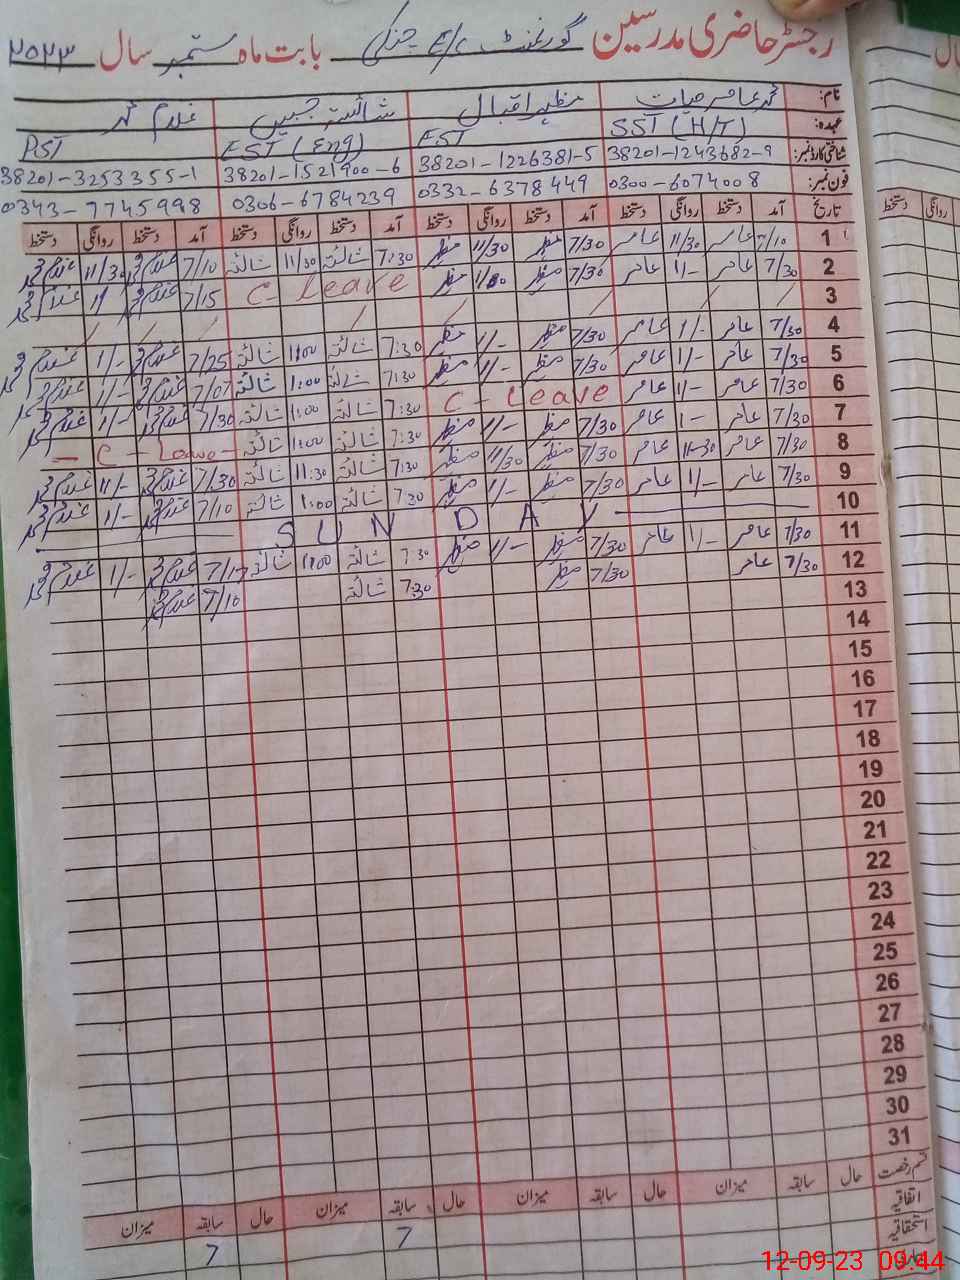 رجسٹر حاضری مدرسین گورنمنٹ E/S چنکی بابت ماہ ستمبر سال ۲۰۲۳
نام: محمد عامر حیات مظہر اقبال شائستہ جبیں غلام محمد
عہدہ: SST (H/T) EST EST (Eng) PST
شناختی کارڈ نمبر: 38201-1243682-9 38201-1226381-5 38201-1521900-6 38201-3253355-1
فون نمبر: 0300-6074008 0332-6378449 0306-6784239 0343-7745998
تاریخ آمد دستخط روانگی دستخط آمد دستخط روانگی دستخط آمد دستخط روانگی دستخط آمد دستخط روانگی دستخط
1 7/10 عامر 11/30 عامر 7/30 مظہر 11/30 مظہر 7:30 شائستہ 11/30 شائستہ 7/10 غلام محمد 11/30 غلام محمد
2 7/30 عامر 1/- عامر 7/30 مظہر 1/00 مظہر C-Leave 7/15 غلام محمد غلام محمد
3
4 7/30 عامر 1/- عامر 7/30 مظہر 1/- مظہر 7:30 شائستہ 1:00 شائستہ 7/25 غلام محمد 1/- غلام محمد
5 7/30 عامر 1/- عامر 7/30 مظہر 1/- مظہر 7:30 شائستہ 1:00 شائستہ 7/07 غلام محمد 1/- غلام محمد
6 7/30 عامر 1/- عامر C-Leave 7:30 شائستہ 1:00 شائستہ 7/30 غلام محمد 1/- غلام محمد
7 7/30 عامر 1- عامر 7/30 مظہر 1/- مظہر 7:30 شائستہ 1:00 شائستہ - C - Leave -
8 7/30 عامر 11-30 عامر 7/30 مظہر 11/30 مظہر 7:30 شائستہ 11:30 شائستہ 7/30 غلام محمد 11/- غلام محمد
9 7/30 عامر 1/- عامر 7/30 مظہر 1/- مظہر 7:30 شائستہ 1:00 شائستہ 7/10 غلام محمد 1/- غلام محمد
10 SUNDAY
11 7/30 عامر 1/- عامر 7/30 مظہر 1/- مظہر 7:30 شائستہ 1:00 شائستہ 7/17 غلام محمد 1/- غلام محمد
12 7/30 عامر 7/30 مظہر 7:30 شائستہ 7/10 غلام محمد
13
14
15
16
17
18
19
20
21
22
23
24
25
26
27
28
29
30
31
قسم رخصت حال سابقہ میزان حال سابقہ میزان حال سابقہ میزان حال سابقہ میزان
اتفاقیہ 7 7
استحقاقیہ
12-09-23 09:44